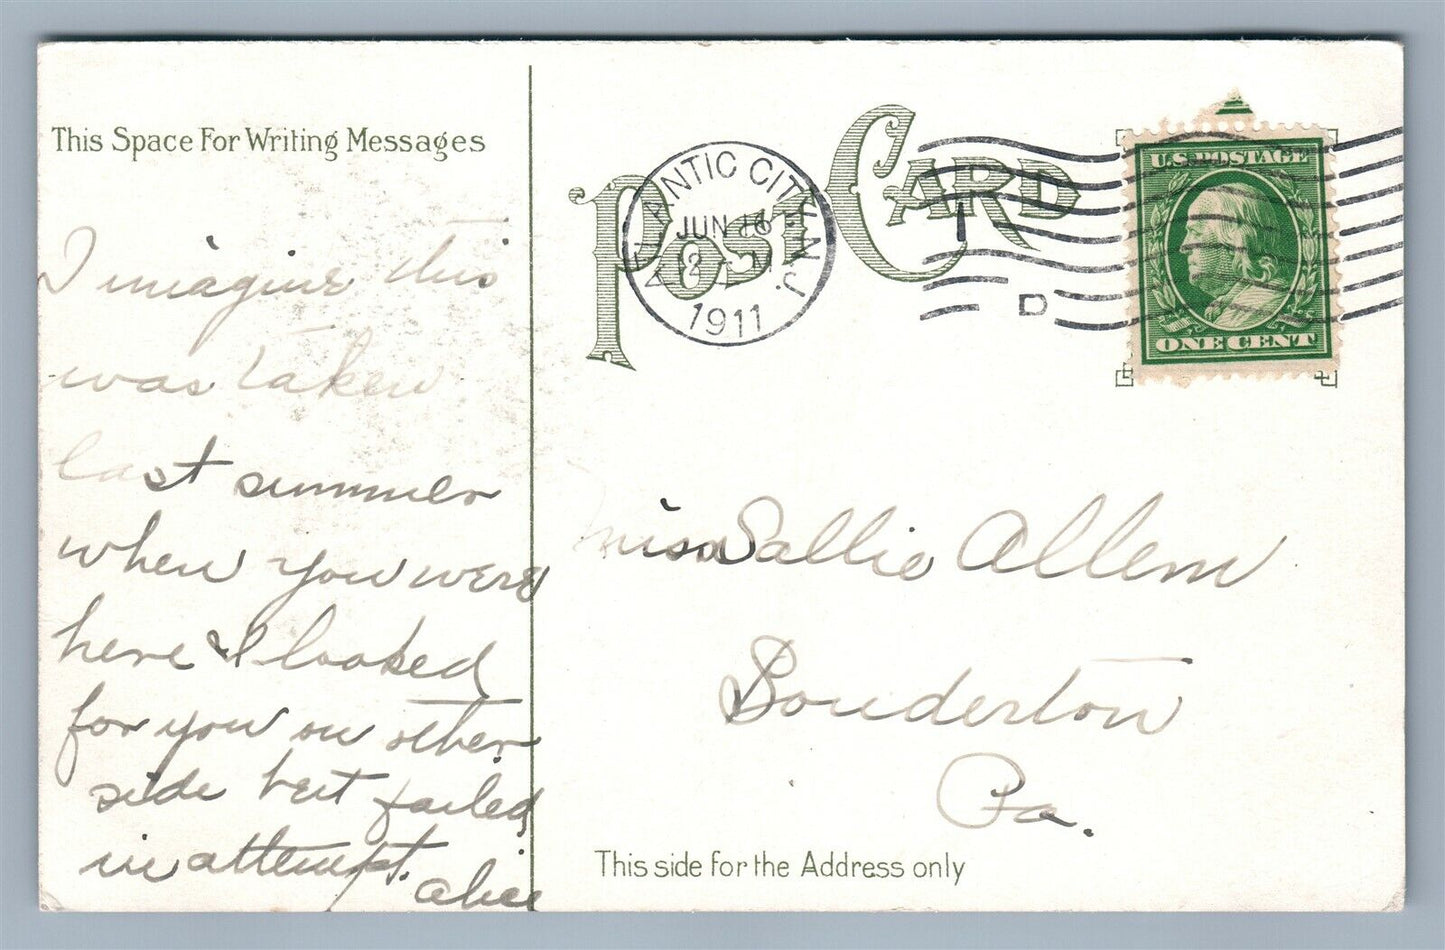 This Space For Writing Messages
I imagine this
was taken
last summer
when you were
here & I looked
for you on other
side but failed
in attempt.
Alice
POST CARD
ATLANTIC CITY, N.J.
JUN 16
1911
D
U.S. POSTAGE
ONE CENT
Miss Sallie Allem
Souderton
Pa.
This side for the Address only